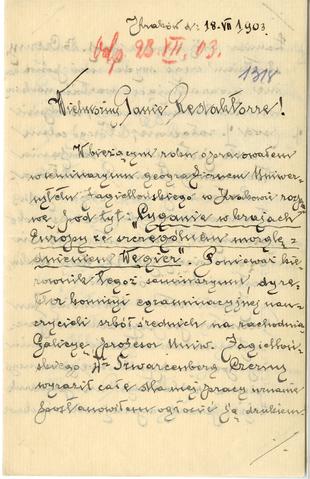 Kraków d: 18-VII 1903
Odp 23.VII. 03.
1318
Wielmożny Panie Redaktorze!
W bieżącym roku opracowałem
w seminaryum geograficznem Uniwer-
sytetu Jagiellońskiego w Krakowie rozpra
wę pod tyt: "Cyganie w krajach
Europy ze szczególnem uwzglę-
dnieniem Węgier". Ponieważ kie-
rownik tegoż seminaryum, dyre-
ktor komisyi egzaminacyjnej nau-
czycieli szkół średnich na zachodnią
Galicyę profesor Uniw. Jagielloń-
skiego Dr Szwarcenberg Czerny
wyraził całe dla mej pracy uznanie
postanowiłem ogłosić ją drukiem.